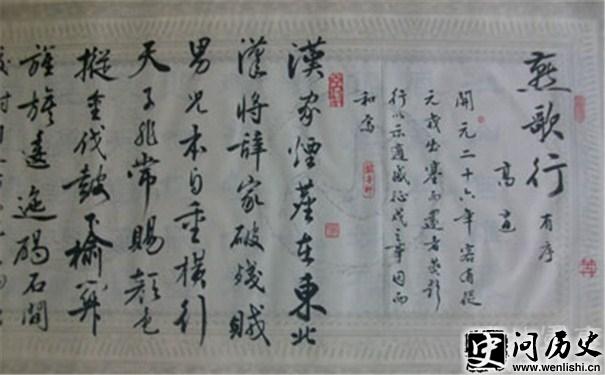 燕歌行 有序
高適
開元二十六年客有從
元戎出塞而還者
行以示適感征戍之事因而
和焉
漢家煙塵在東北
漢將辭家破殘賊
男兒本自重橫行
天子非常賜顏色
摐金伐鼓下榆關
旌旆逶迤碣石間
问历史
www.wenlishi.cn